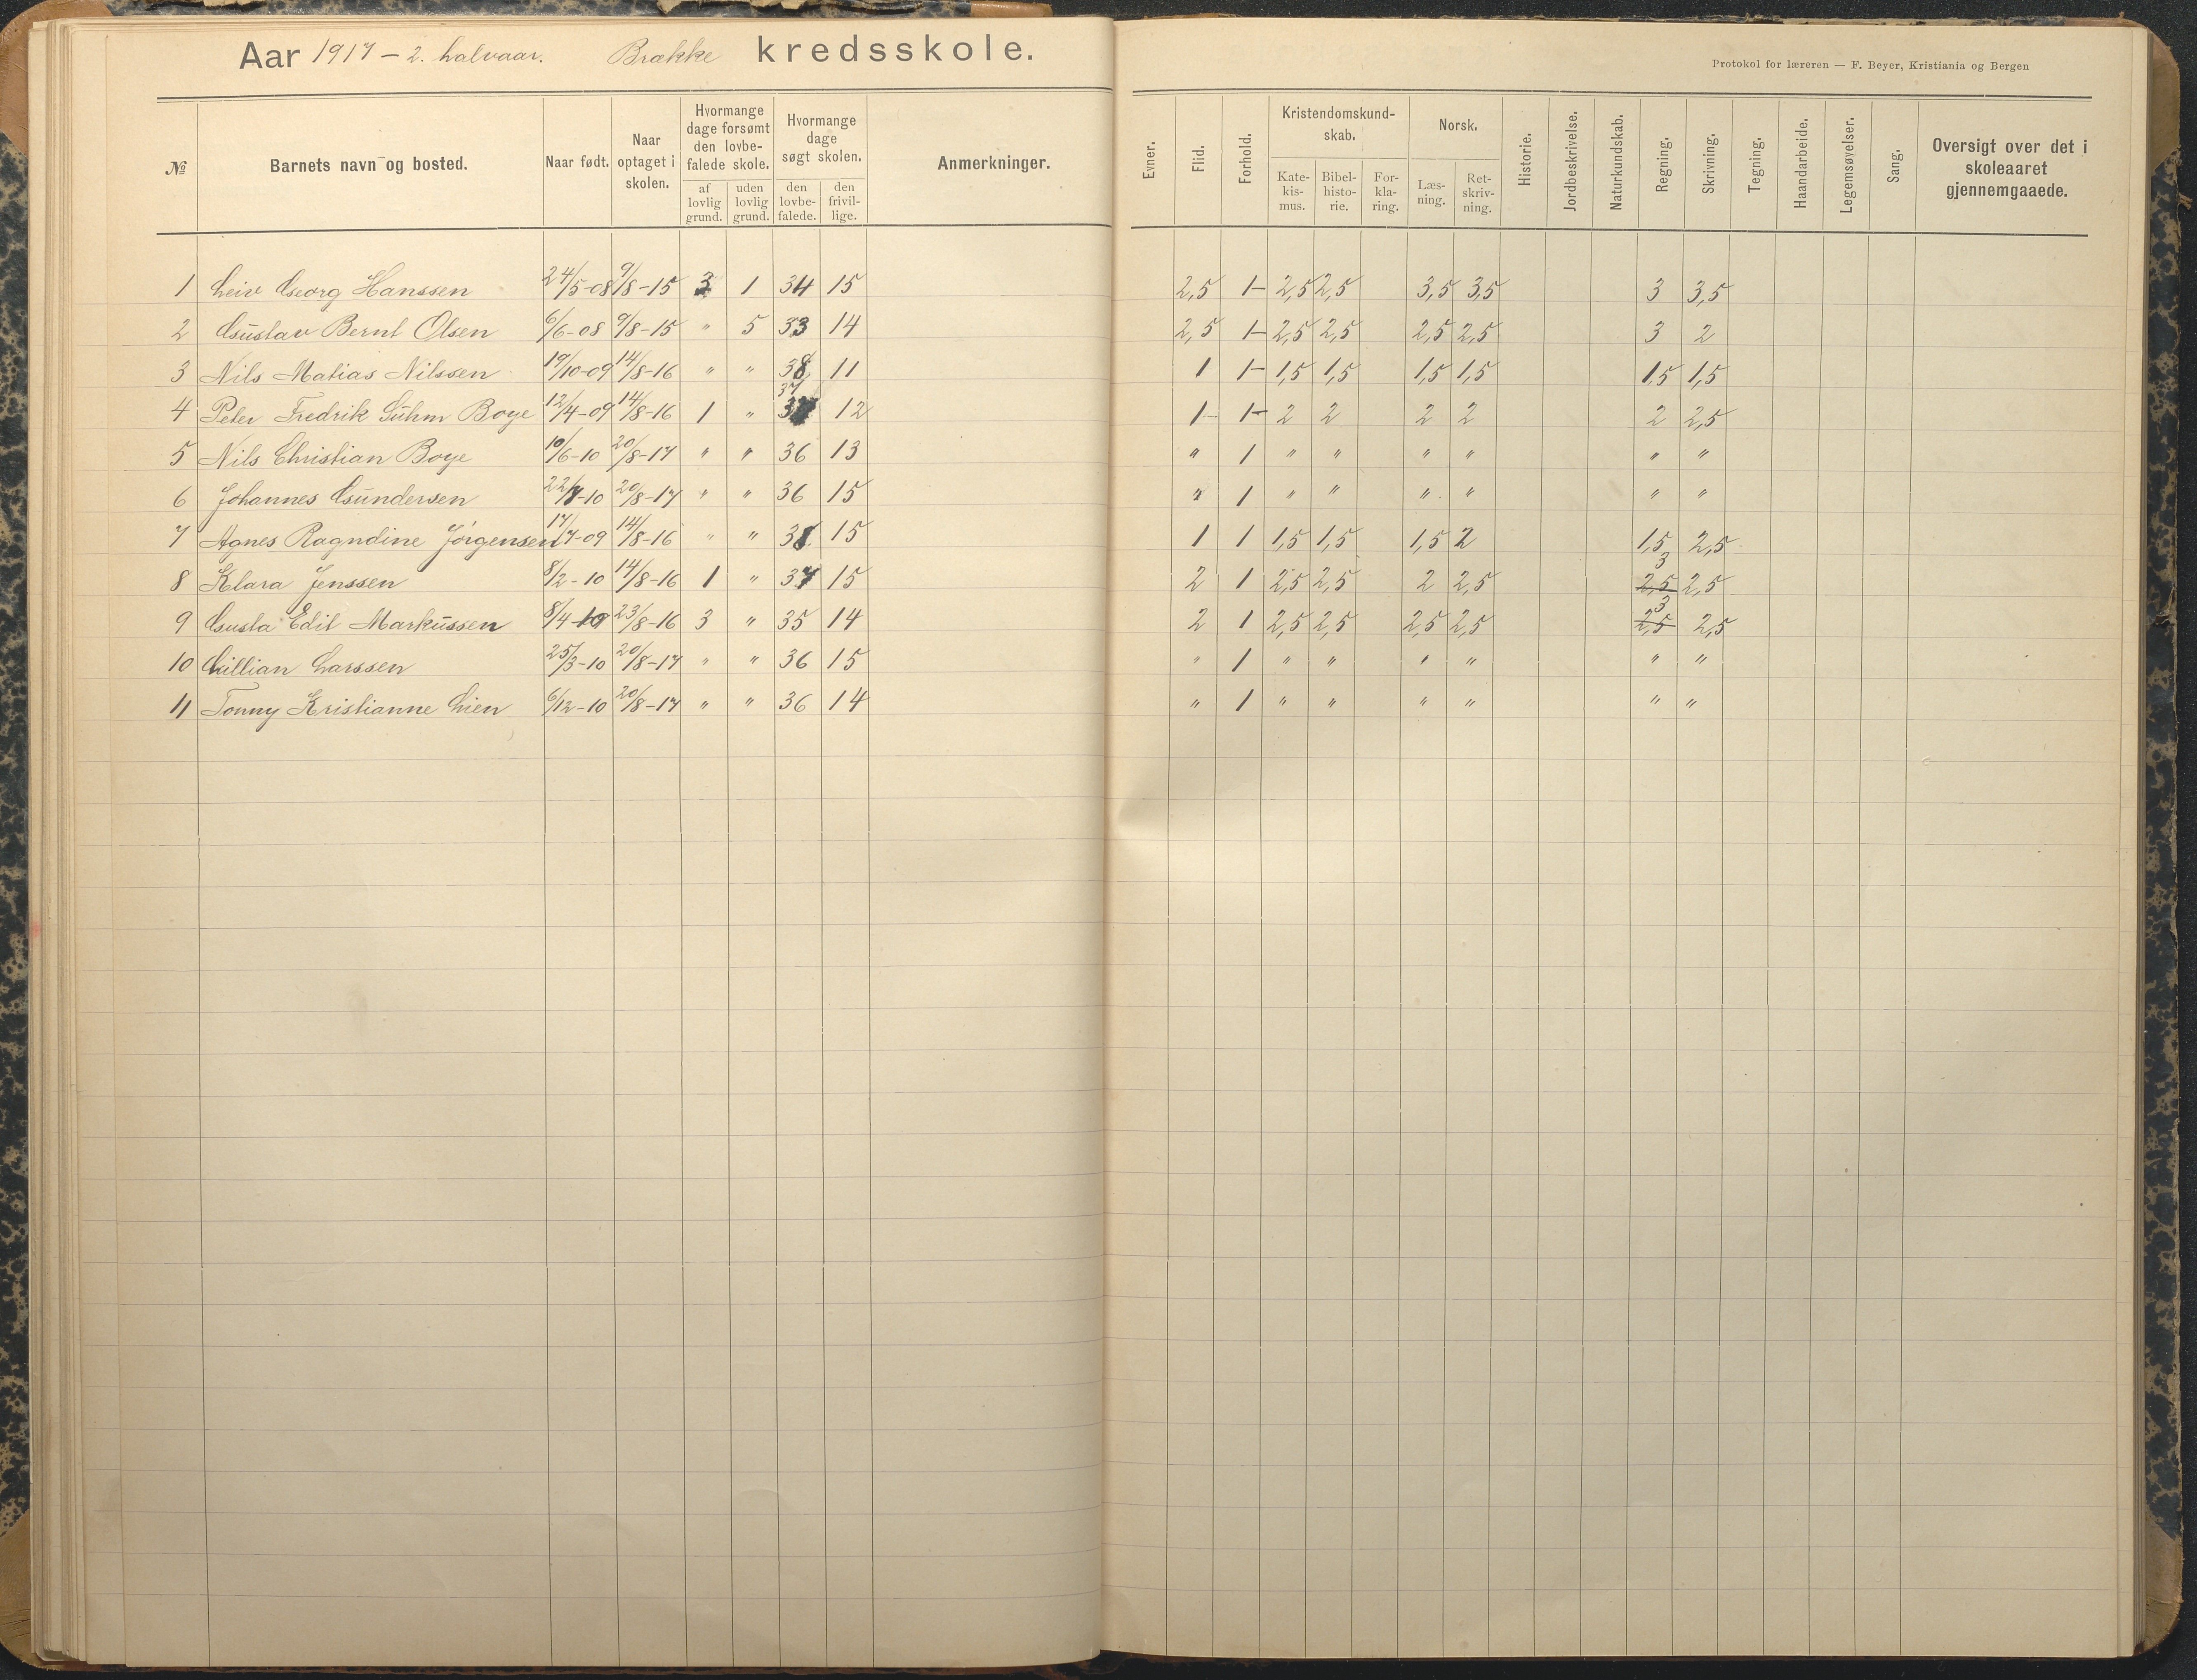 Aar 1917 – 2. halvaar. Brække kredsskole.
Protokol for læreren — F. Beyer, Kristiania og Bergen
№ Barnets navn og bosted. Naar født. Naar optaget i skolen. Hvormange dage forsømt den lovbefalede skole. af lovlig grund. uden lovlig grund. Hvormange dage søgt skolen. den lovbefalede. den frivillige. Anmerkninger. Evner. Flid. Forhold. Kristendomskundskab. Katekismus. Bibelhistorie. Forklaring. Norsk. Læsning. Retskrivning. Historie. Jordbeskrivelse. Naturkundskab. Regning. Skrivning. Tegning. Haandarbeide. Legemsøvelser. Sang. Oversigt over det i skoleaaret gjennemgaaede.
1 Leiv Georg Hanssen 24/5-08 9/8-15 3 1 34 15 2,5 1- 2,5 2,5 3,5 3,5 3 3,5
2 Gustav Bernt Olsen 6/6-08 9/8-15 " 5 33 14 2,5 1- 2,5 2,5 2,5 2,5 3 2
3 Nils Matias Nilssen 19/10-09 14/8-16 " " 38 11 1 1- 1,5 1,5 1,5 1,5 1,5 1,5
4 Peter Fredrik Suhm Boye 12/4-09 14/8-16 1 " 37 12 1- 1- 2 2 2 2 2 2,5
5 Nils Christian Boye 10/6-10 20/8-17 " " 36 13 " 1 " " " " " "
6 Johannes Gundersen 22/7-10 20/8-17 " " 36 15 " 1 " " " " " "
7 Agnes Ragndine Jörgensen 17/7-09 14/8-16 " " 38 15 1 1 1,5 1,5 1,5 2 1,5 2,5
8 Klara Jenssen 8/2-10 14/8-16 1 " 37 15 2 1 2,5 2,5 2 2,5 2,5 3 2,5
9 Gusta Edit Markussen 8/4-10 23/8-16 3 " 35 14 2 1 2,5 2,5 2,5 2,5 2,5 3 2,5
10 Lillian Larssen 25/3-10 20/8-17 " " 36 15 " 1 " " " " " "
11 Tonny Kristianne Lien 6/12-10 20/8-17 " " 36 14 " 1 " " " " " "